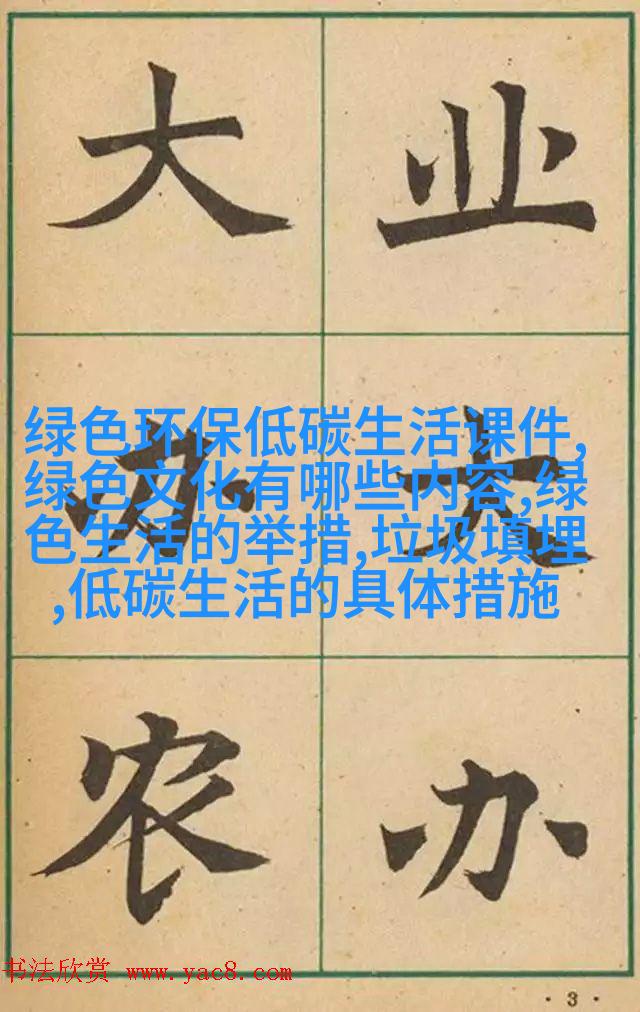 业大办
大办农
绿色环保低碳生活课件,
绿色文化有哪些内容,绿
色生活的举措,垃圾填埋
,低碳生活的具体措施
书法欣赏 www.yac8.com
·3·